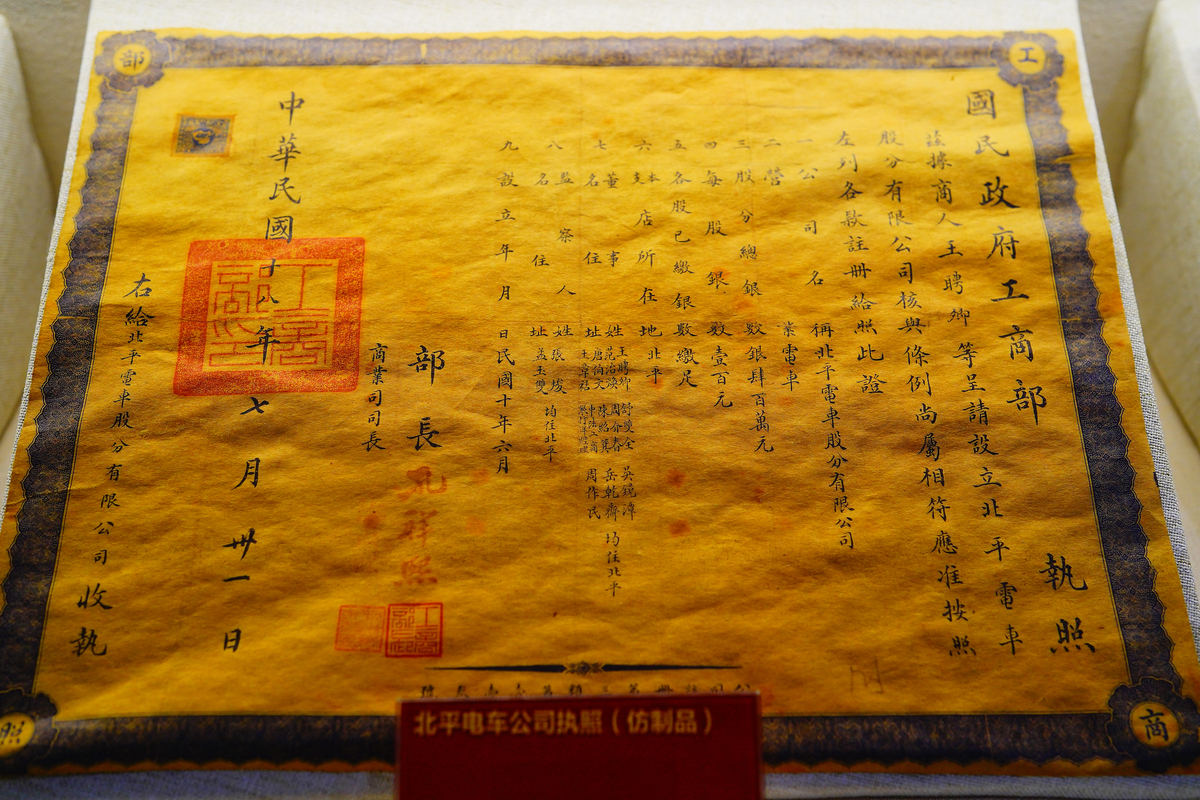 工
商
部
照
國民政府工商部執照
茲據商人王聘卿等呈請設立北平電車
股分有限公司核與條例尚屬相符應准按照
左列各款註冊給照此證
一公司名稱北平電車股分有限公司
二營業電車
三股分總銀數銀肆百萬元
四每股銀數壹百元
五各股已繳銀數繳足
六本支店所在地北平
七董事姓名住址王聘卿 舒雙全 吳鏡潭
范治煥 周介春 岳乾齋 均住北平
唐伯文 陳紹箕 周作民
王章祜
八監察人姓名住址張埈
孟玉雙 均住北平
九設立年月日民國十年六月
部長孔祥熙
商業司司長
中華民國十八年七月卅一日
右給北平電車股分有限公司收執
北平电车公司执照（仿制品）